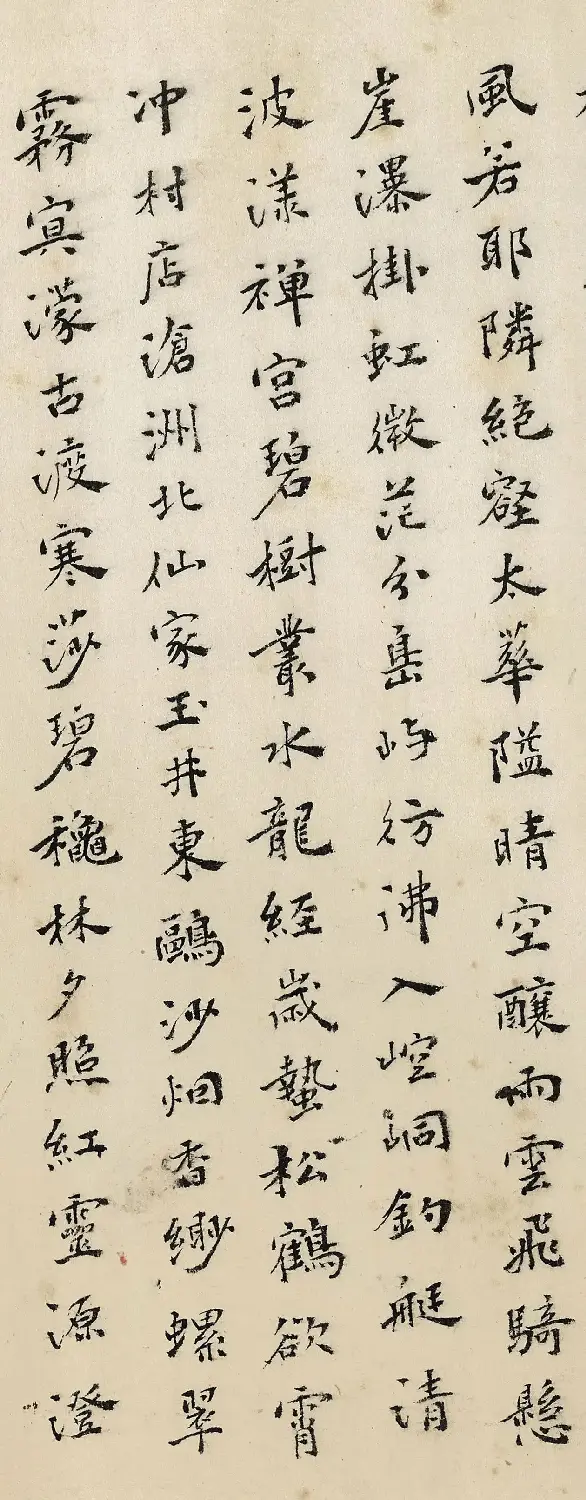 風若耶隣絕壑太華隘晴空釀雨雲飛騎懸
崖瀑掛虹微茫分島嶼彷彿入崆峒釣艇清
波漾禪宮碧樹叢水龍經歲蟄松鶴欲霄
冲村店滄洲北仙家玉井東鷗沙烟香緲螺翠
霧冥濛古渡寒莎碧穐林夕照紅靈源澄